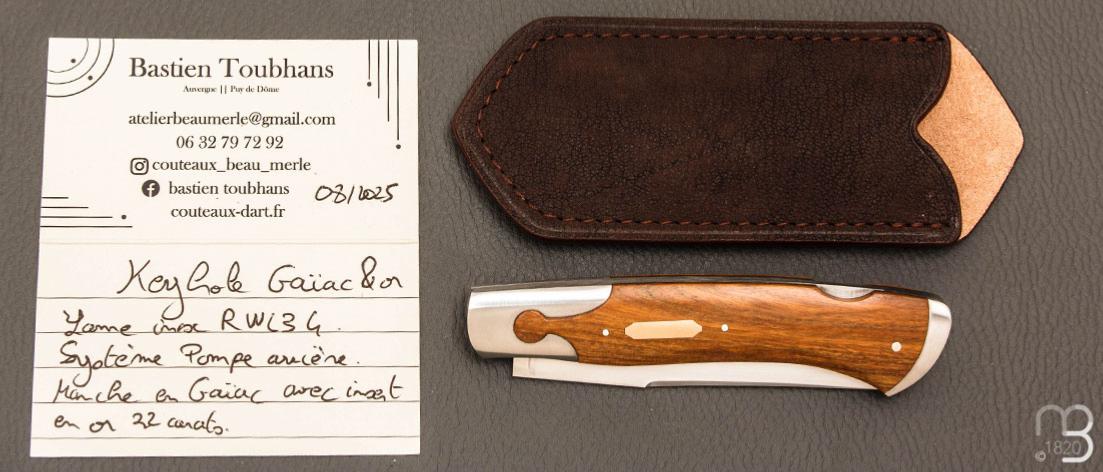 Bastien Toubhans
Auvergne || Puy de Dôme
atelierbeaumerle@gmail.com
06 32 79 72 92
couteaux_beau_merle
bastien toubhans
08/2025
couteaux-dart.fr
Keyhole Gaïac & or
Lame inox RWL34.
Système Pompe arrière.
Manche en Gaïac avec insert
en or 22 carats.
©1820